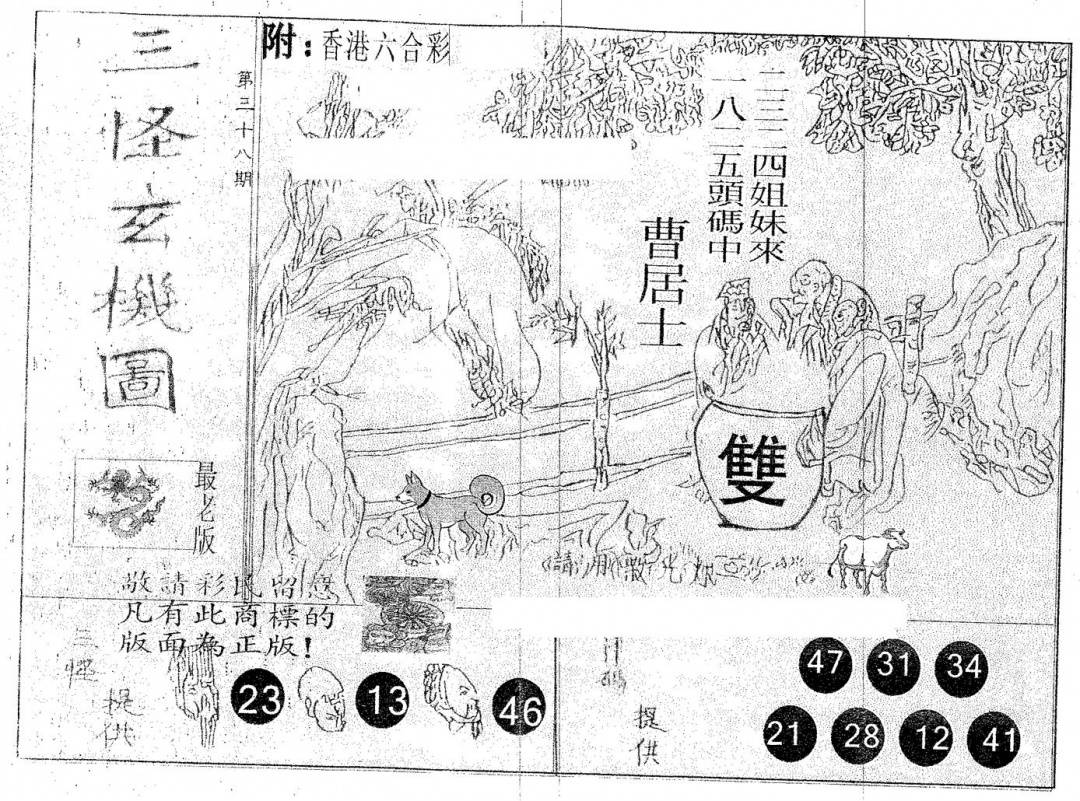 三怪玄機圖
第三十八期
附：香港六合彩
一二三二四姐妹來
一八二五頭碼中
曹居士
雙
最老版
敬請彩民留意
凡有此商標的
版面為正版！
三怪
提供
23
13
46
提供
47 31 34
21 28 12 41